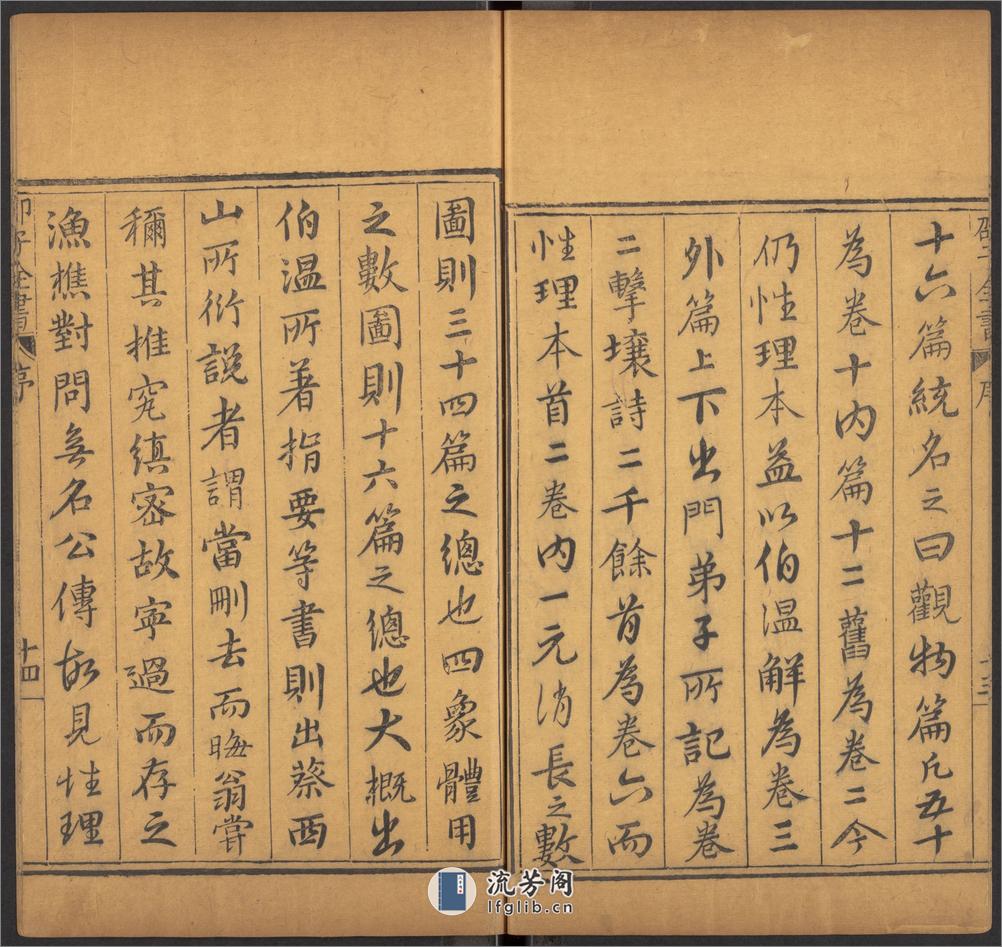 十六篇統名之曰觀物篇凡五十
為卷十內篇十二舊為卷二今
仍性理本益以伯溫解為卷三
外篇上下出門弟子所記為卷
二擊壤詩二千餘首為卷六而
性理本首二卷內一元消長之數
圖則三十四篇之總也四象體用
之數圖則十六篇之總也大概出
伯溫所著指要等書則出蔡西
山所衍說者謂當刪去而晦翁嘗
稱其推究縝密故寧過而存之
漁樵對問無名公傳故見性理
邵子全書 序
十四
流芳阁
lfglib.cn